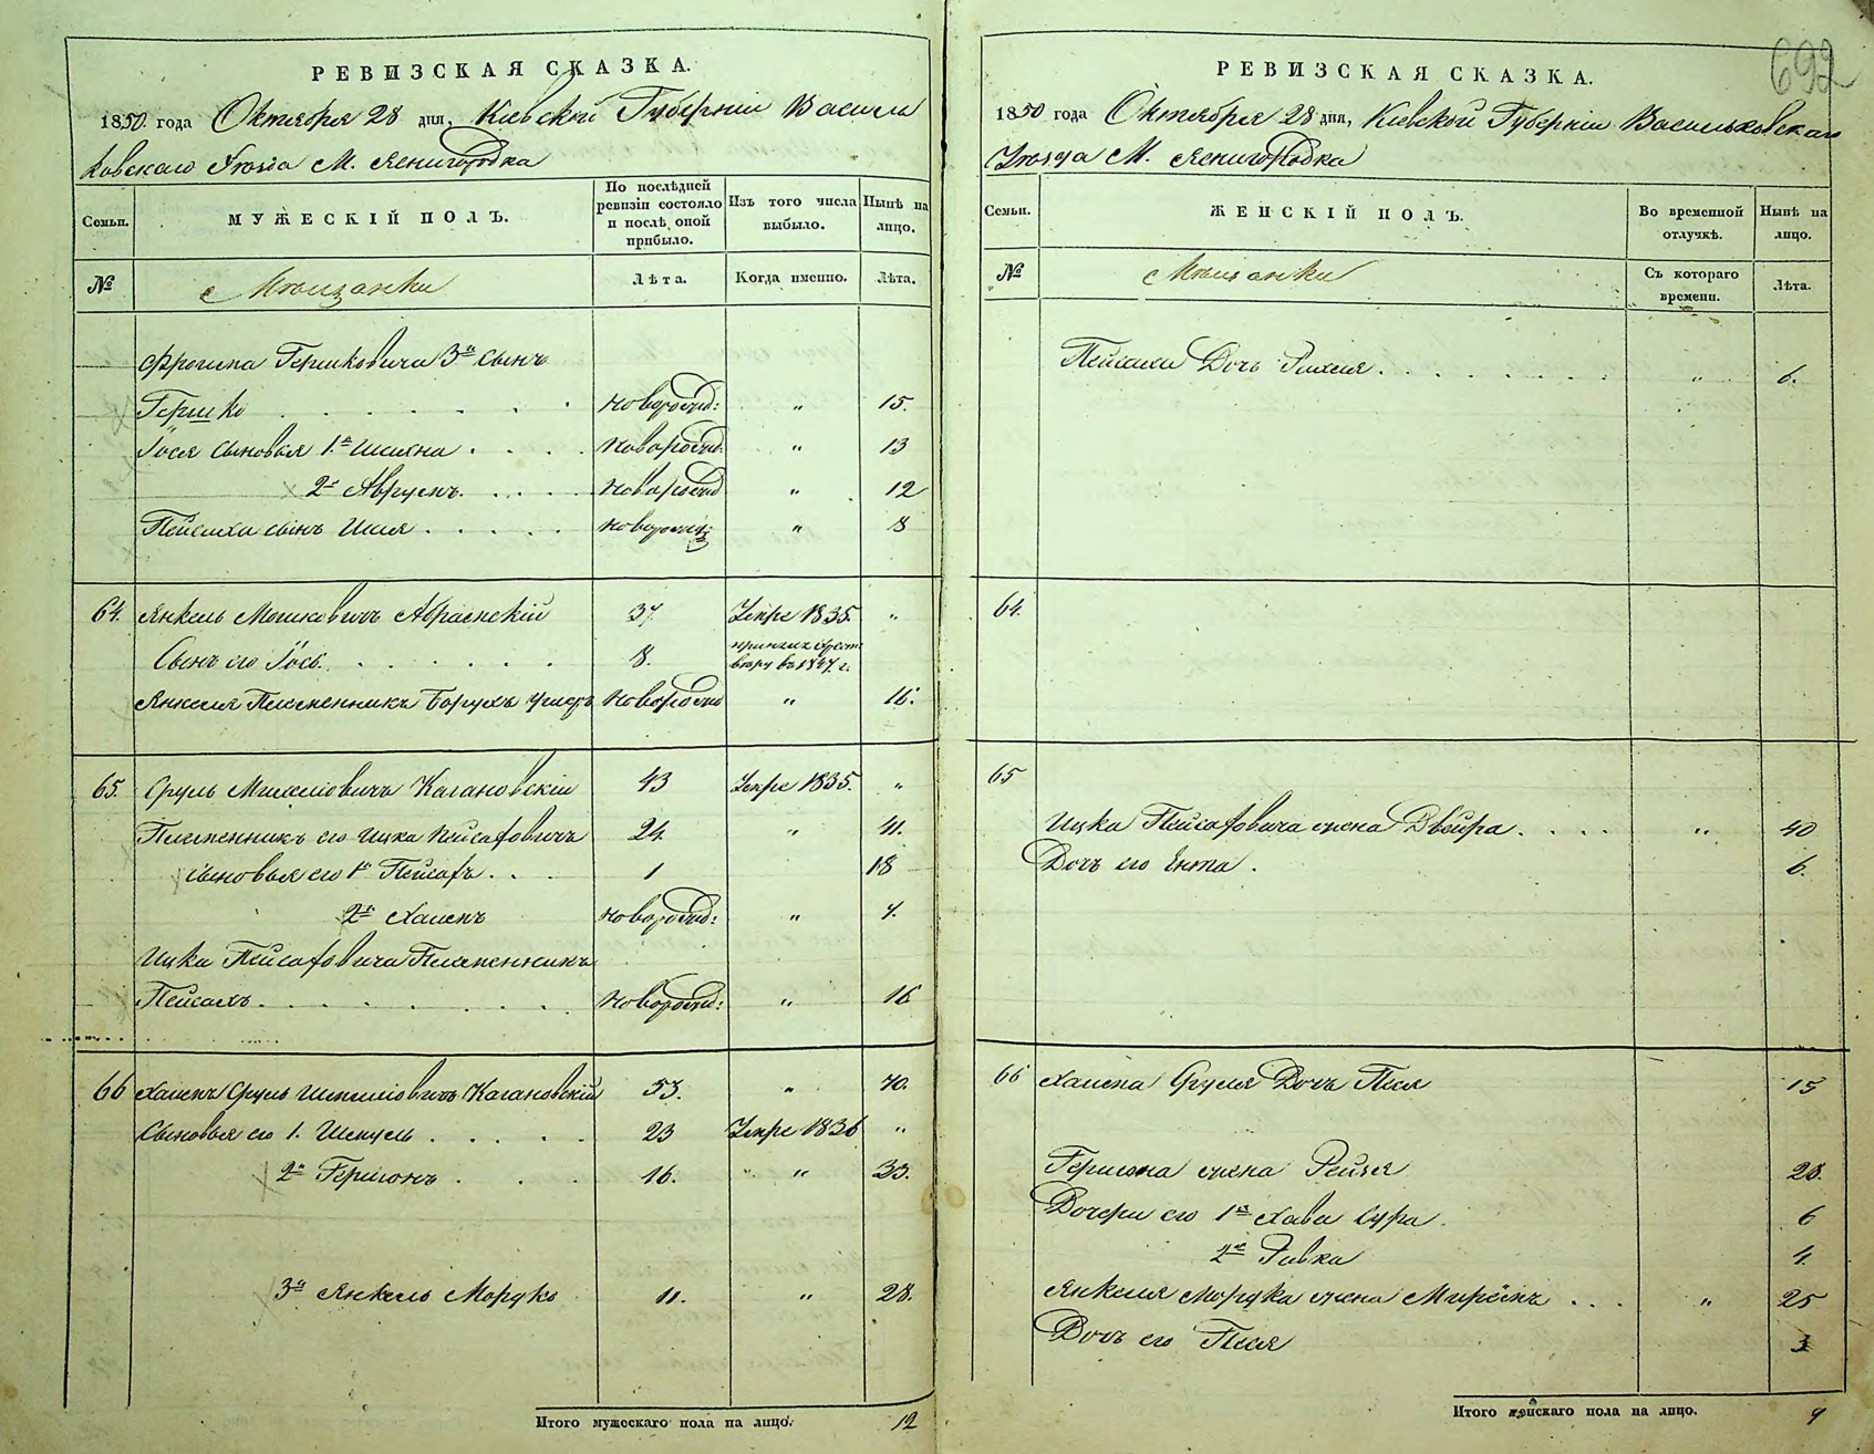 РЕВИЗСКАЯ СКАЗКА.
1850. года Октября 28 дня, Кіевской Губерніи Василь
ковскаго Уѣзда М. Ясногородка
Семьи.
МУЖЕСКІЙ ПОЛЪ.
По послѣдней ревизіи состояло и послѣ оной прибыло.
Изъ того числа выбыло.
Нынѣ на лицо.
№
Мѣщанки
Лѣта.
Когда именно.
Лѣта.
Фроима Гершковича 3й сынъ
Гершко новорожд: " 15.
Іося сыновья 1й Шаяна новорожд: " 13
2й Аврумъ новорожд " 12
Пейсаха сынъ Шая новорожд: " 8
64. Янкель Мошковичъ Абрамскій 37 Умре 1835. "
Сынъ его Іось 8. принялъ Христ вѣру въ 1847 г.
Янкеля Племенникъ Борухъ новорожд " 16.
65. Сруль Михелiовичъ Кагановскій 43 Умре 1835. "
Племенникъ его Ицка Пейсаховичъ 24 " 41.
сыновья его 1й Пейсахъ 1 18
2й Хаимъ новорожд: " 4.
Ицки Пейсаховича Племенникъ
Пейсахъ новорожд: " 16
66 Хаимъ Сруль Шмулiовичъ Кагановскій 53. " 70.
Сыновья его 1. Шмуль 23 Умре 1836 "
2й Гершонъ 16. " " 33.
3й Янкель Мордко 11. " 28.
Итого мужескаго пола на лицо. 12
692
РЕВИЗСКАЯ СКАЗКА.
1850 года Октября 28 дня, Кіевской Губерніи Васильковскаго
Уѣзда М. Ясногородка
Семьи.
ЖЕНСКІЙ ПОЛЪ.
Во временной отлучкѣ.
Нынѣ на лицо.
№
Мѣщанки
Съ котораго времени.
Лѣта.
Пейсаха Дочь Рихля " 6.
64.
65
Ицка Пейсаховича жена Двейра " 40
Дочь его Ента 6.
66 Хаима Сруля Дочь Песя 15
Гершона жена Рейзя 28.
Дочери его 1я Хава Сура 6
2я Ривка 4
Янкеля Мордка жена Мирьямъ " 25
Дочь его Песя 3
Итого женскаго пола на лицо. 9